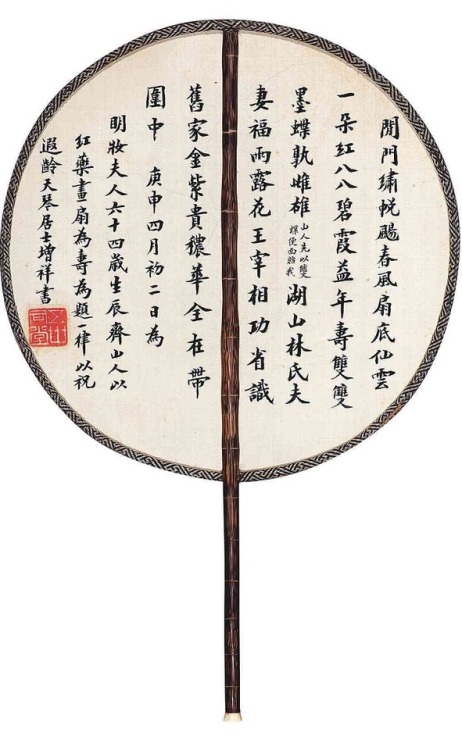 閒門繡帨颺春風扇底仙雲
一朵紅八八碧霞益年壽雙雙
墨蝶孰雌雄山人先以雙蜨便面貽我湖山林氏夫
妻福雨露花王宰相功省識
舊家金紫貴穠華全在帶
圍中 庚申四月初二日為
明妝夫人六十四歲生辰齊山人以
紅藥畫扇為壽為題一律以祝
遐齡天琴居士增祥書